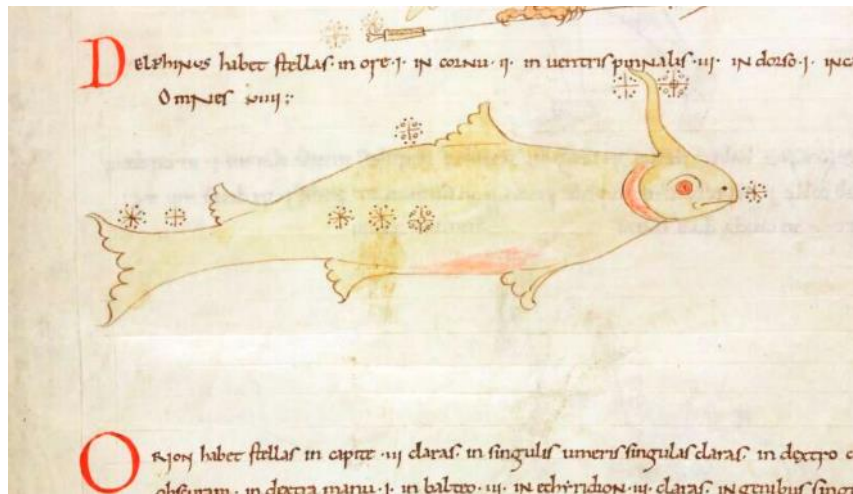 DELPHINUS habet stellas· in ore·i· in cornu·ii· in uentris pinnalis·iii· in dorso·i· in ca
Omnes viiii:
ORION habet stellas in capite·iii claras· in singulis umeris singulas claras· in dextro c
obscuram· in dextra manu·i· in balteo·iii· in enchyridion·iii· claras in genibus singu